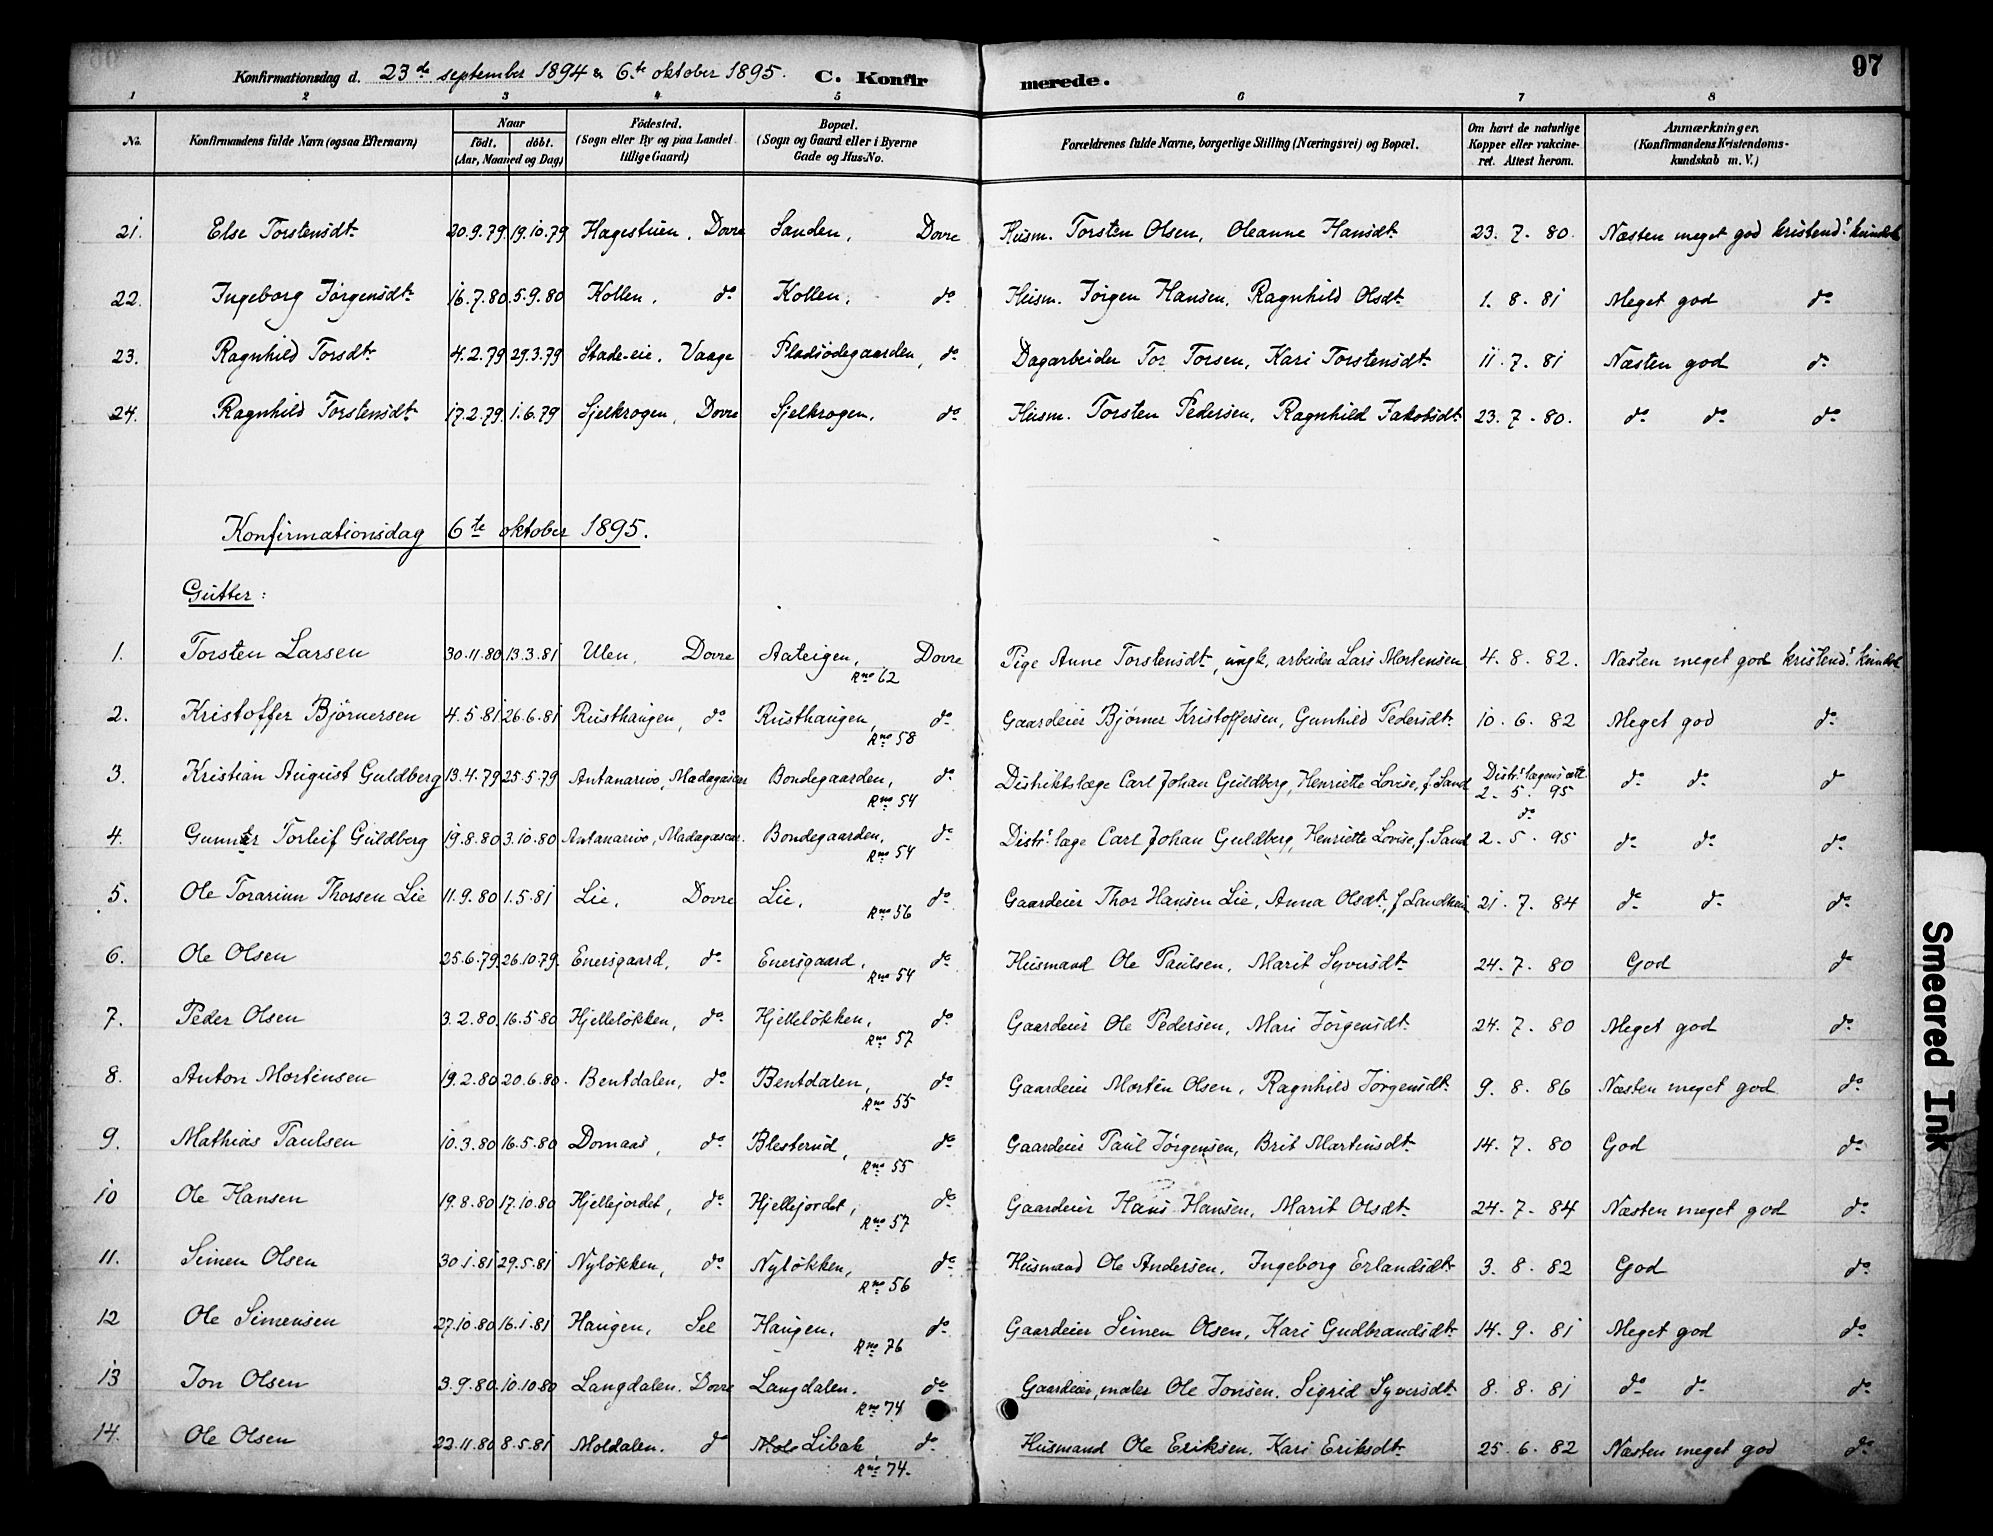 Konfirmationsdag d. 23de september 1894 & 6.te oktober 1895. C. Konfirmerede. 97
1 2 3 4 5 6 7 8
No. Konfirmandens fulde Navn (ogsaa Efternavn) Naar født. døbt. (Aar, Maaned og Dag) Fødested. (Sogn eller By og paa Landet tillige Gaard) Bopæl. (Sogn og Gaard eller i Byerne Gade og Hus-No. Forældrenes fulde Navne, borgerlige Stilling (Næringsvei) og Bopæl. Om havt de naturlige Kopper eller vakcineret. Attest herom. Anmærkninger. (Konfirmandens Kristendomskundskab m. V.)
21. Else Torstensdtr 20.9.79. 19.10.79 Hagestuen, Dovre Sanden, Dovre Husm. Torsten Olsen, Oleanne Hansdtr 23. 7. 80. Næsten meget god kristend.s kundsk
22. Ingeborg Jørgensdtr 16.7.80 5.9.80 Kollen, do Kollen, do Husm. Jørgen Hansen, Ragnhild Olsdtr 1. 8. 81 Meget god do
23. Ragnhild Torsdtr 4.2.79 29.3.79 Stade-eie, Vaage Pladsødegaarden, do Dagarbeider Tor Torsen, Kari Torstensdtr 11. 7. 81 Næsten god do
24. Ragnhild Torstensdtr 17.2.79. 1.6.79 Sjelkrogen, Dovre Sjelkrogen, do Husm. Torsten Pedersen, Ragnhild Jakobsdtr 23. 7. 80. do do do
Konfirmationsdag 6te oktober 1895.
Gutter:
1. Torsten Larsen 30.11.80 13.3.81 Ulen, Dovre Aateigen, Dovre Rno 62 Pige Anne Torstensdtr, ungk. arbeider Lars Mortensen 4. 8. 82. Næsten meget god kristend.s kundsk
2. Kristoffer Bjørnersen 4.5.81 26.6.81 Rusthaugen, do Rusthaugen, do Rno 58 Gaardeier Bjørner Kristoffersen, Gunhild Pedersdtr 10. 6. 82 Meget god do
3. Kristian August Guldberg 13.4.79 25.5.79 Antanarivo, Madagascar Bondegaarden, do Rno 54 Distriktslæge Carl Johan Guldberg, Henriette Lovise, f. Sand Distr.s lægens att. 2. 5. 95 do do do
4. Gunnar Torleif Guldberg 19.8.80 3.10.80 Antanarivo, Madagascar. Bondegaarden, do Rno 54 Distr.s læge Carl Johan Guldberg, Henriette Lovise, f. Sand do 2. 5. 95 do do do
5. Ole Torarinn Thorsen Lie 11.9.80 1.5.81 Lie, Dovre Lie, do Rno 56 Gaardeier Thor Hansen Lie, Anna Olsdtr, f. Landheim 21. 7. 84 do do do
6. Ole Olsen 25.6.79. 26.10.79. Enersgaard, do Enersgaard, do Rno 54 Husmand Ole Paulsen, Marit Syversdtr 24. 7. 80 God do
7. Peder Olsen 3.2.80. 16.5.80 Hjelleløkken, do Hjelleløkken, do Rno 57 Gaardeier Ole Pedersen, Mari Jørgensdtr 24. 7. 80 Meget god do
8. Anton Mortensen 19.2.80 20.6.80. Bentdalen, do Bentdalen, do Rno 55 Gaardeier Morten Olsen, Ragnhild Jørgensdtr 9. 8. 86 Næsten meget god do
9. Mathias Paulsen 10.3.80 16.5.80 Domaas, do Blesterud, do Rno 55 Gaardeier Paul Jørgensen, Brit Martinsdtr 14. 7. 80 God do
10 Ole Hansen 19.8.80 17.10.80 Hjellejordet, do Hjellejordet, do Rno 57 Gaardeier Hans Hansen, Marit Olsdtr 24. 7. 84 Næsten meget god do
11. Simen Olsen 30.1.81 29.5.81 Nyløkken, do Nyløkken, do Rno 56 Husmand Ole Andersen, Ingeborg Erlandsdtr 3. 8. 82 God do
12 Ole Simensen 27.10.80 16.1.81 Haugen, Sel Haugen, do Rno 76 Gaardeier Simen Olsen, Kari Gudbrandsdtr 14. 9. 81 Meget god do
13 Jon Olsen 3.9.80 10.10.80 Langdalen. Dovre Langdalen. do Rno 74 Gaardeier, maler Ole Jonsen. Sigrid Syversdtr 8. 8. 81 do do do
14. Ole Olsen 22.11.80 8.5.81 Moldalen. do Libak do Rno 74. Husmand Ole Eriksen. Kari Eriksdtr 25. 6. 82 Næsten meget god do
Smeared Ink